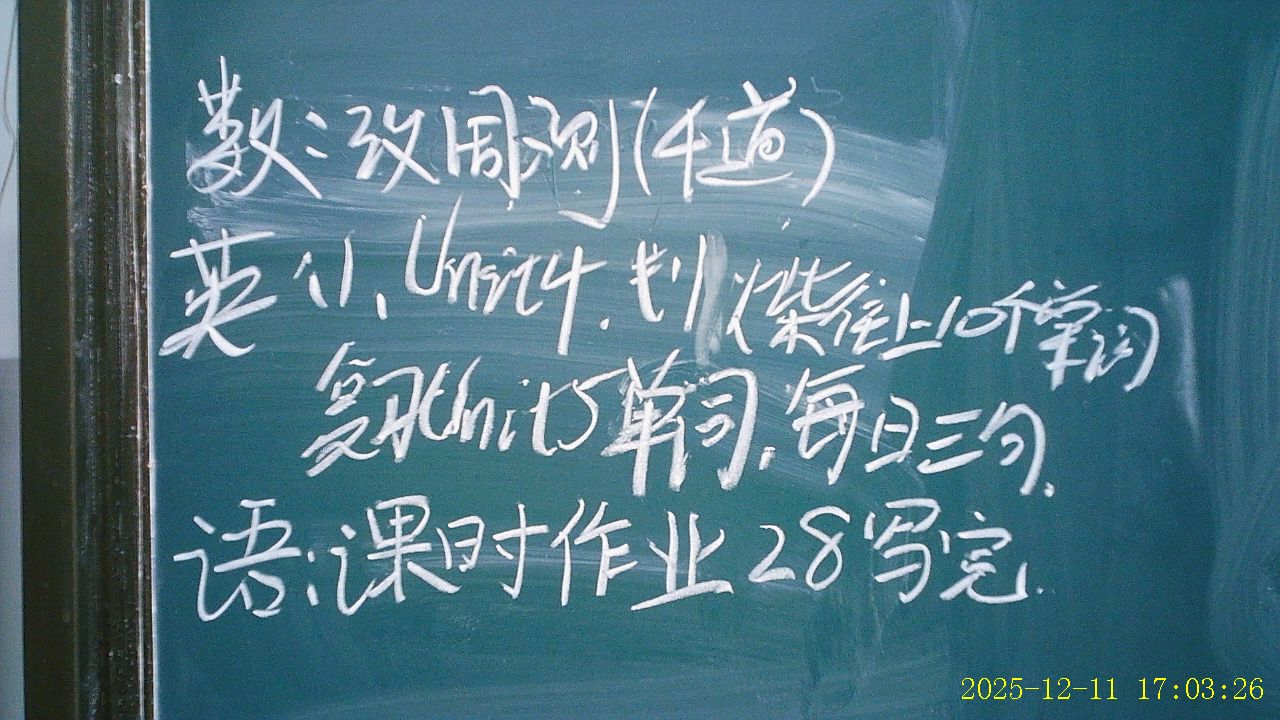 数:改周测(4道)
英:1、Unit4. 划(柴往上10个单词)
复习Unit5单词,每日三句.
语:课时作业28写完.
2025-12-11 17:03:26